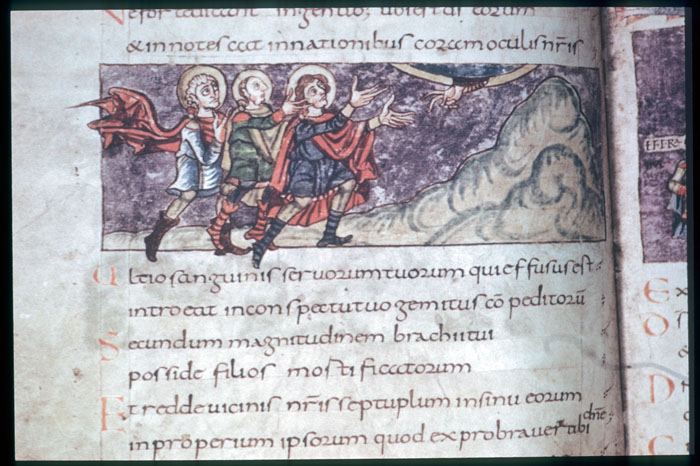 Ne forte dicant in gentibus ubi est ds eorum
& innotescat in nationibus coram oculis nr̄is
Ultio sanguinis servorum tuorum qui effusus est
introeat in conspectu tuo gemitus cō peditorū
Secundum magnitudinem brachii tui
posside filios mortificatorum
Et redde uicinis nr̄is septuplum in sinu eorum
inproperium ipsorum quod exprobraver̄ tibi dn̄e
EFFRA
Ex
O
D